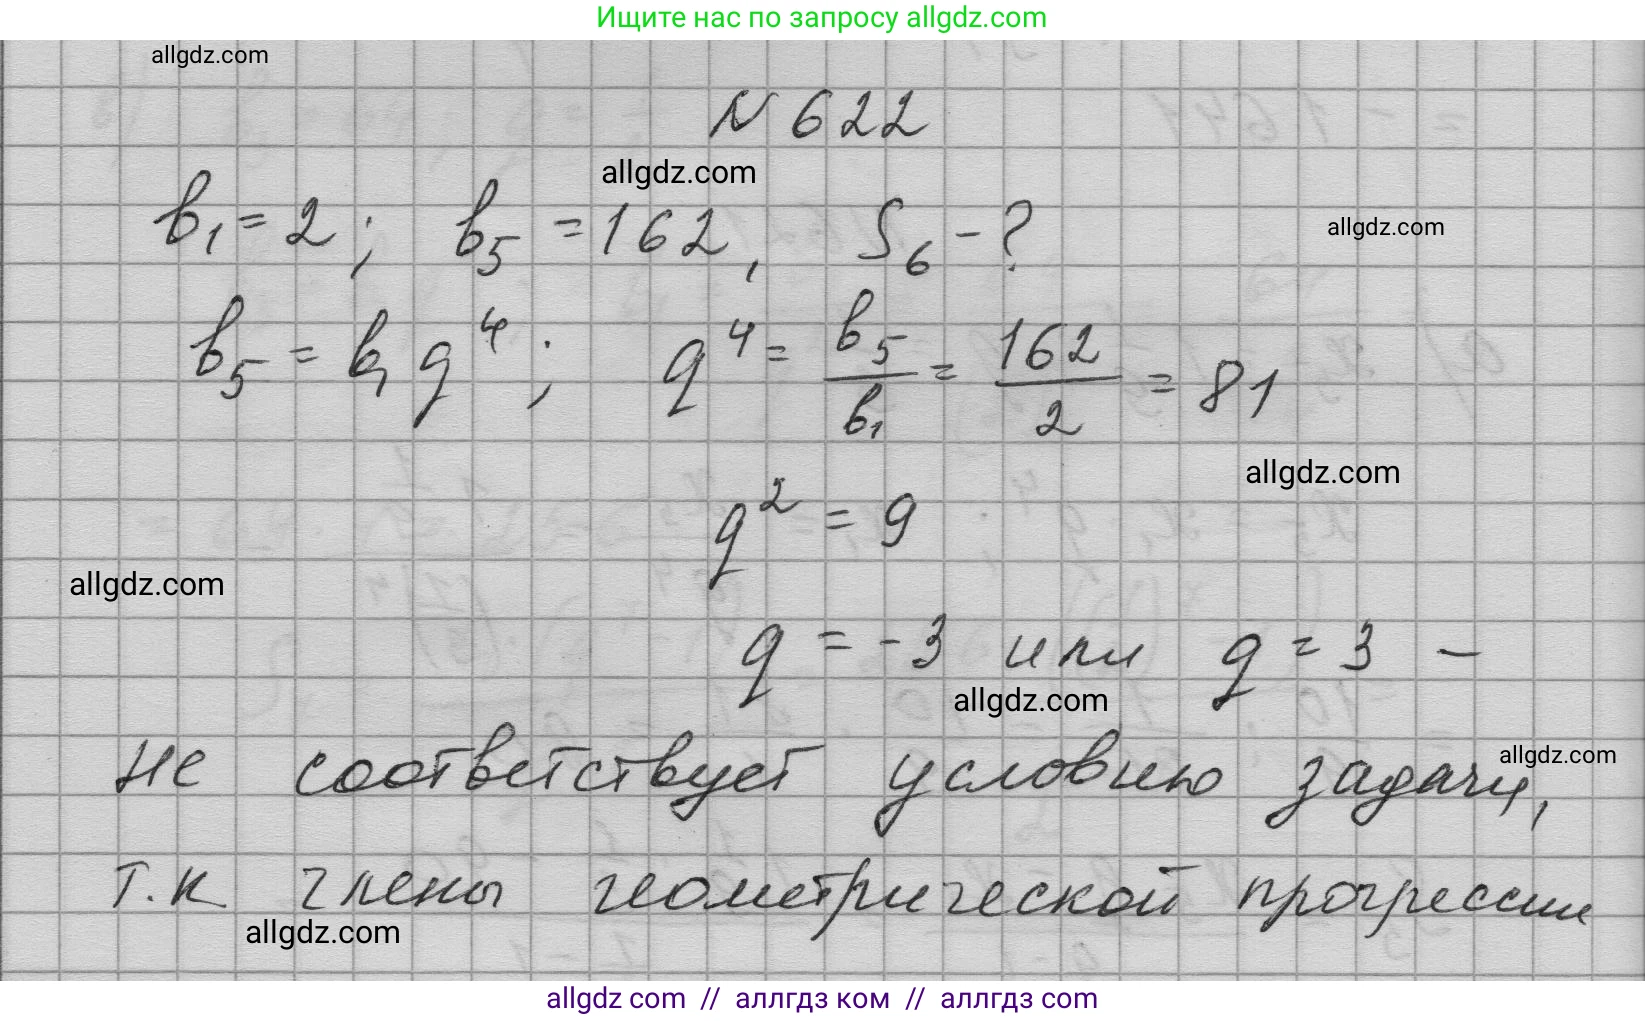 Ищите нас по запросу allgdz.com
allgdz.com
N 622
allgdz.com
b₁ = 2; b₅ = 162, S₆ - ?
allgdz.com
b₅ = b₁ q⁴; q⁴ = b₅/b₁ = 162/2 = 81
allgdz.com
q² = 9
allgdz.com
q = -3 или q = 3 -
allgdz.com
не соответствует условию задачи,
allgdz.com
т.к члены геометрической прогрессии
allgdz.com
allgdz com // аллгдз ком // аллгдз com